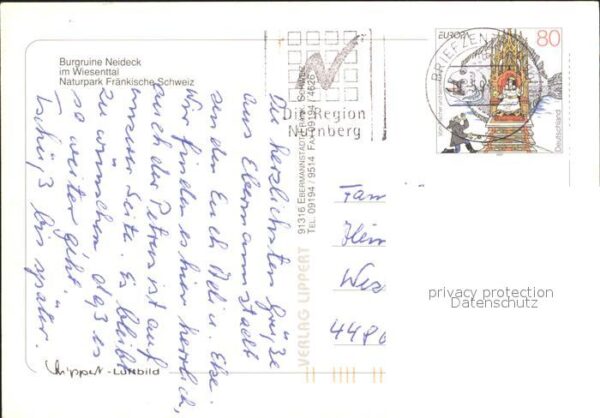 Burgruine Neideck
im Wiesenttal
Naturpark Fränkische Schweiz
Die herzlichsten Grüße
aus Ebermannstadt
senden Euch Adi u. Else.
Wir finden es hier herrlich,
auch der Petrus ist auf
unserer Seite. Es bleibt
zu wünschen daß es
so weiter geht.
Tschüß bis später.
Lippert-Luftbild
VERLAG LIPPERT
91316 EBERMANNSTADT/FRÄNK. Schweiz
TEL. 09194 / 9514 FAX 09194 / 4626
Die Region
Nürnberg
BRIEFZEN
EUROPA
80
Deutschland
Fam
Wes
448
privacy protection
Datenschutz